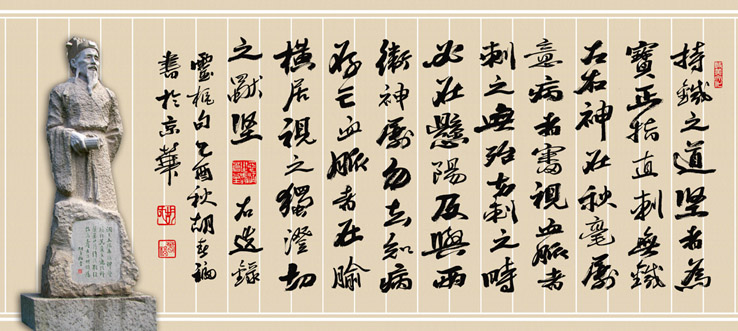 持鍼之道坚者為
寶正指直刺無鍼
左右神在秋毫屬
意病者審視血脈者
刺之無殆方刺之時
必在懸陽及與兩
衛神屬勿去知病
存亡血脈者在腧
橫居視之獨澄切
之獨坚 右选錄
靈樞句乙酉秋胡
書於京華